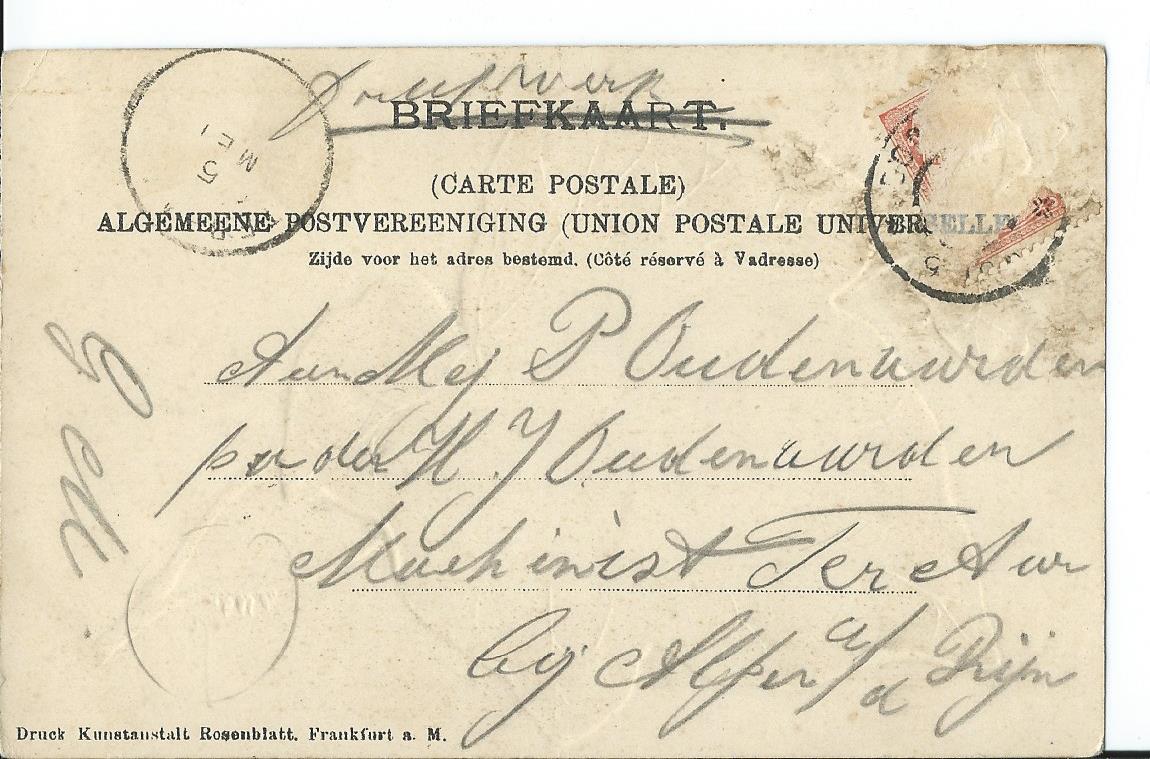 Drukwerk
BRIEFKAART.
(CARTE POSTALE)
ALGEMEENE POSTVEREENIGING (UNION POSTALE UNIVERSELLE)
Zijde voor het adres bestemd. (Côté réservé à Vadresse)
5 MEI
Aan Mej P Oudenaarden
p/a den H. J Oudenaarden
Machinist Ter Aar
bij Alfen a/d Rijn
Druck Kunstanstalt Rosenblatt. Frankfurt a. M.